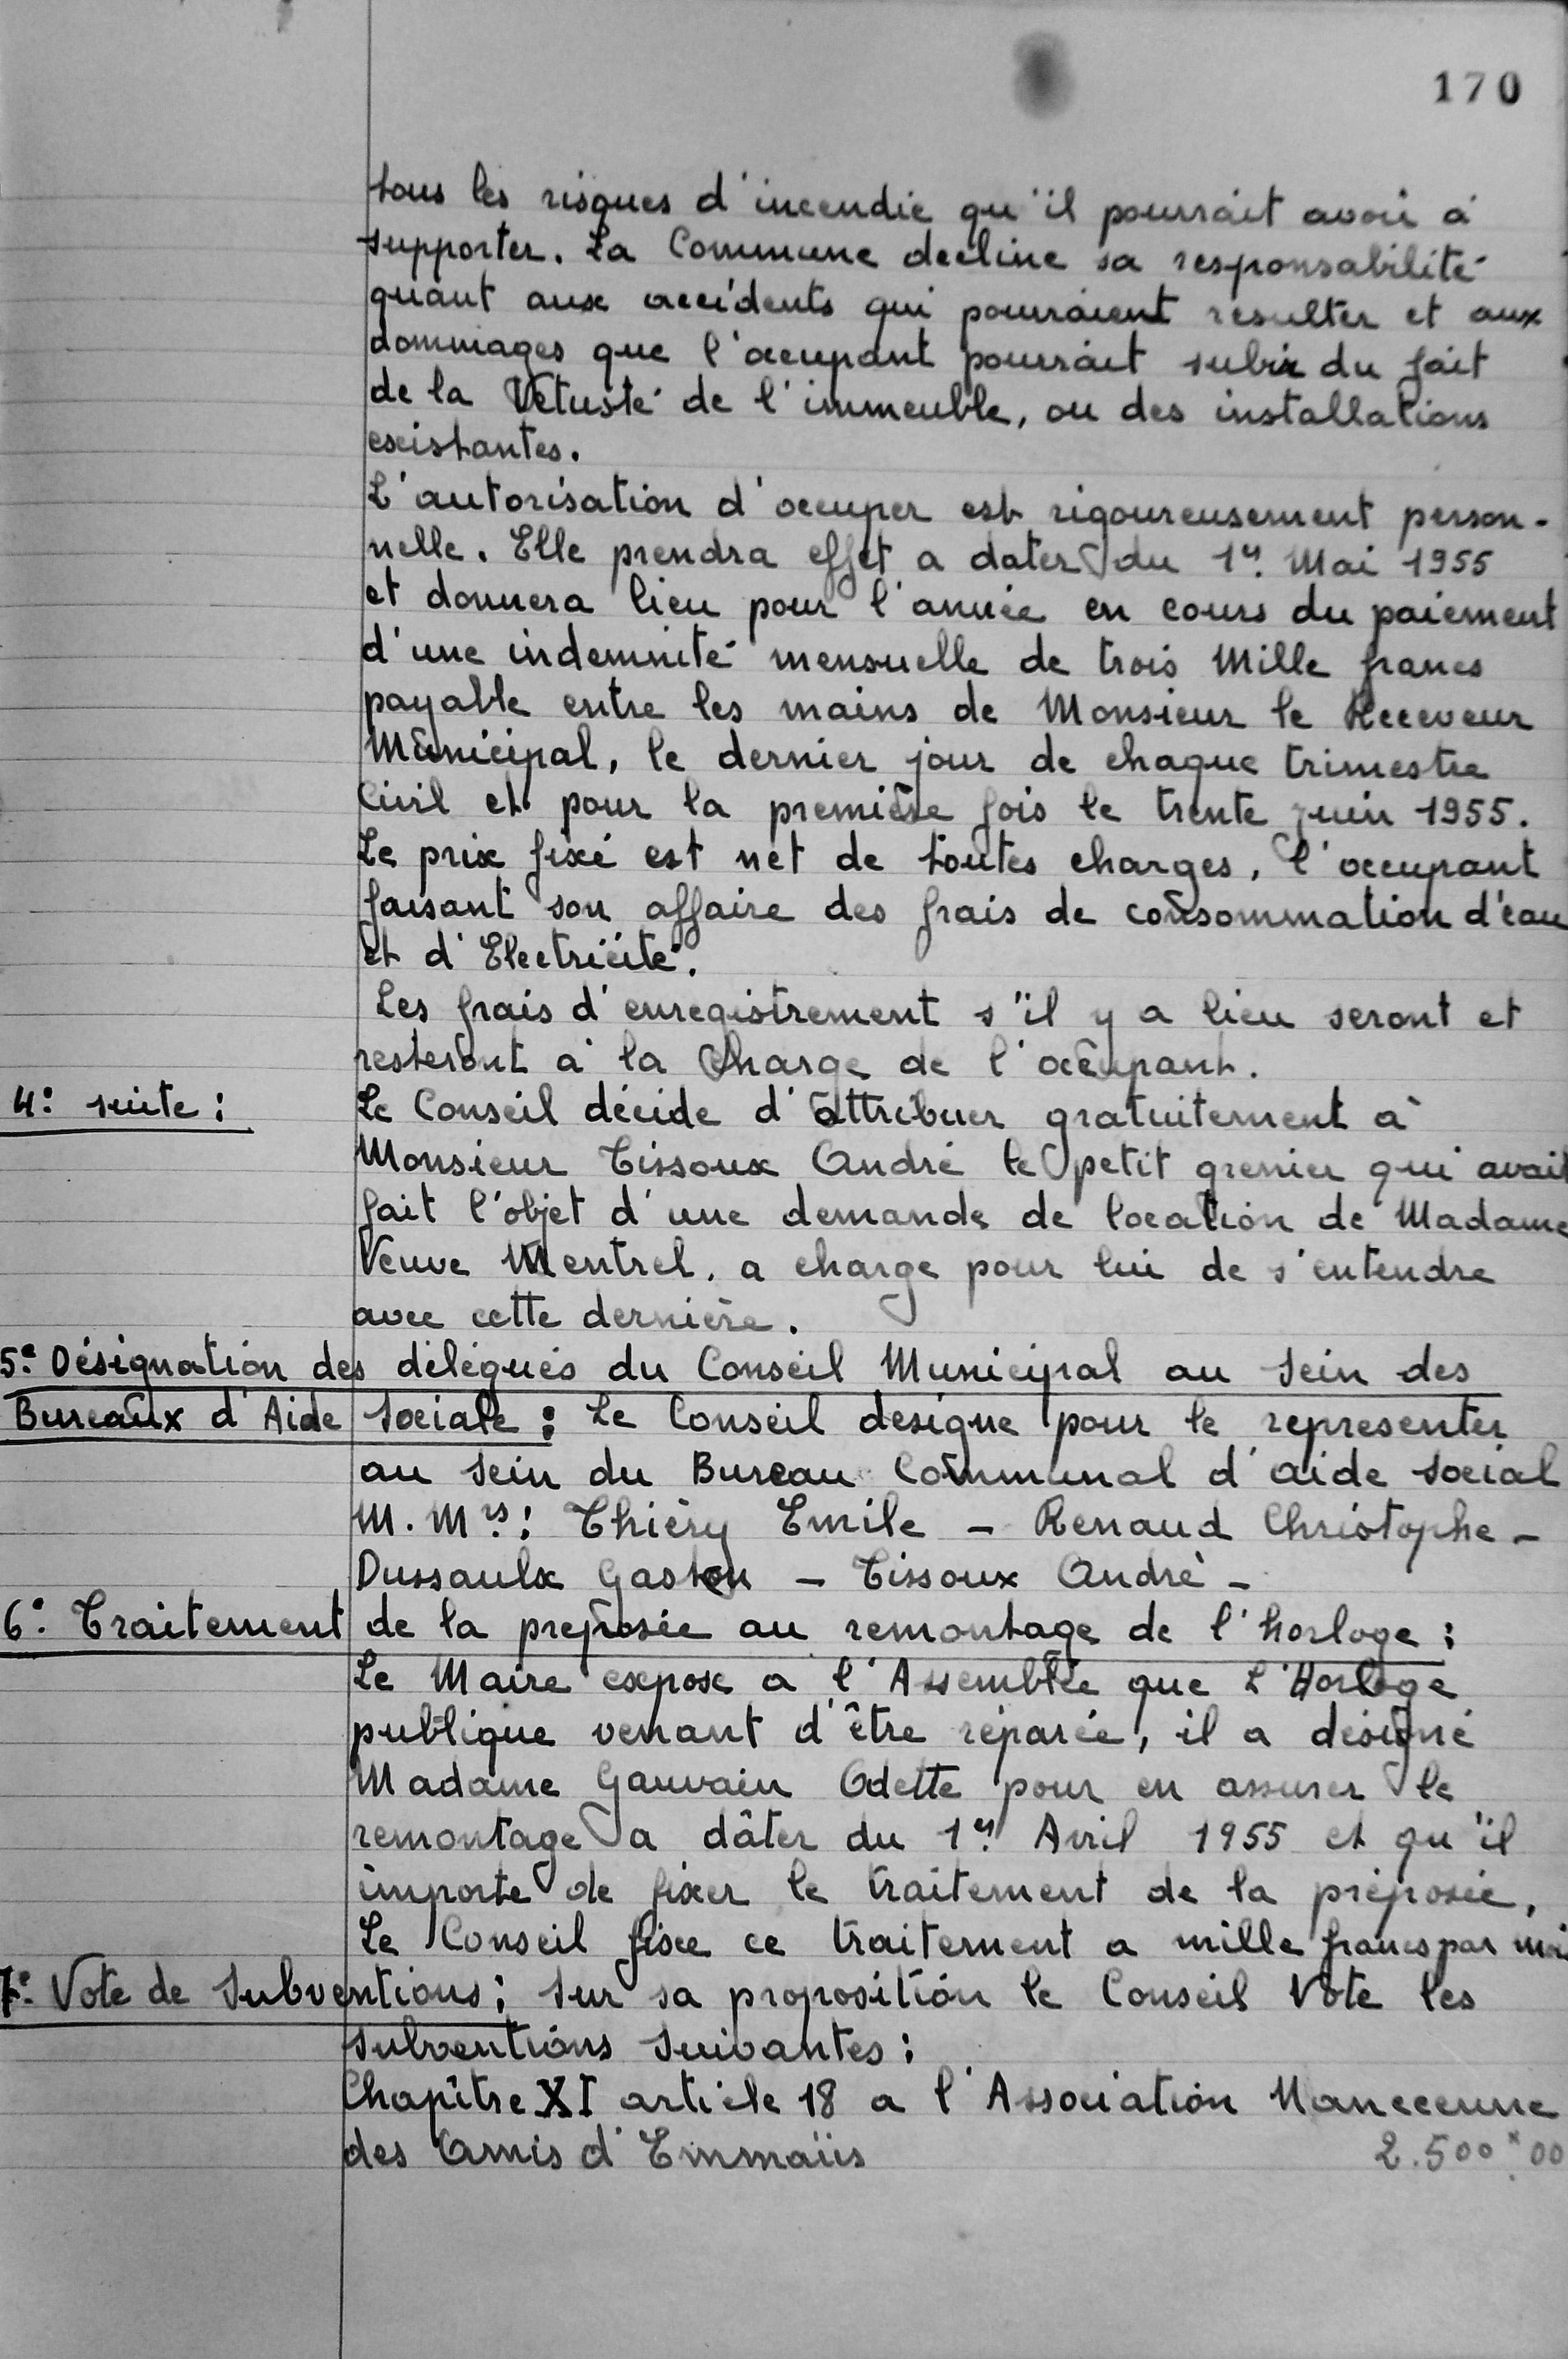 170
tous les risques d'incendie qu'il pourrait avoir à
supporter. La Commune decline sa responsabilité
quant aux accidents qui pourraient resulter et aux
dommages que l'occupant pourrait subir du fait
de la Vétusté de l'immeuble, ou des installations
existantes.
L'autorisation d'occuper est rigoureusement person-
nelle. Elle prendra effet a dater du 1er Mai 1955
et donnera lieu pour l'année en cours du paiement
d'une indemnité mensuelle de trois Mille francs
payable entre les mains de Monsieur le Receveur
Municipal, le dernier jour de chaque trimestre
Civil et pour la première fois le trente juin 1955.
Le prix fixé est net de toutes charges, l'occupant
faisant son affaire des frais de consommation d'eau
et d'Electricité.
Les frais d'enregistrement s'il y a lieu seront et
resteront à la Charge de l'occupant.
4° suite : Le Conseil décide d'attribuer gratuitement à
Monsieur Tissoux André le petit grenier qui avait
fait l'objet d'une demande de location de Madame
Veuve Mentrel, a charge pour lui de s'entendre
avec cette dernière.
5° Désignation des délégués du Conseil Municipal au sein des
Bureaux d'Aide sociale : Le Conseil designe pour le representer
au sein du Bureau Communal d'aide social
M.Mrs : Thiéry Emile - Renaud Christophe -
Dussaulx Gaston - Tissoux André -
6° Traitement de la preposée au remontage de l'horloge :
Le Maire expose a l'Assemblée que L'Horloge
publique venant d'être réparée, il a désigné
Madame Gauvain Odette pour en assurer le
remontage a dâter du 1er Avril 1955 et qu'il
importe de fixer le traitement de la préposée,
Le Conseil fixe ce traitement a mille francs par moi
7° Vote de Subventions : sur sa proposition le Conseil Vote les
subventions suivantes :
Chapitre XI article 18 a l'Association Nanceenne
des Amis d'Emmaüs 2.500 00